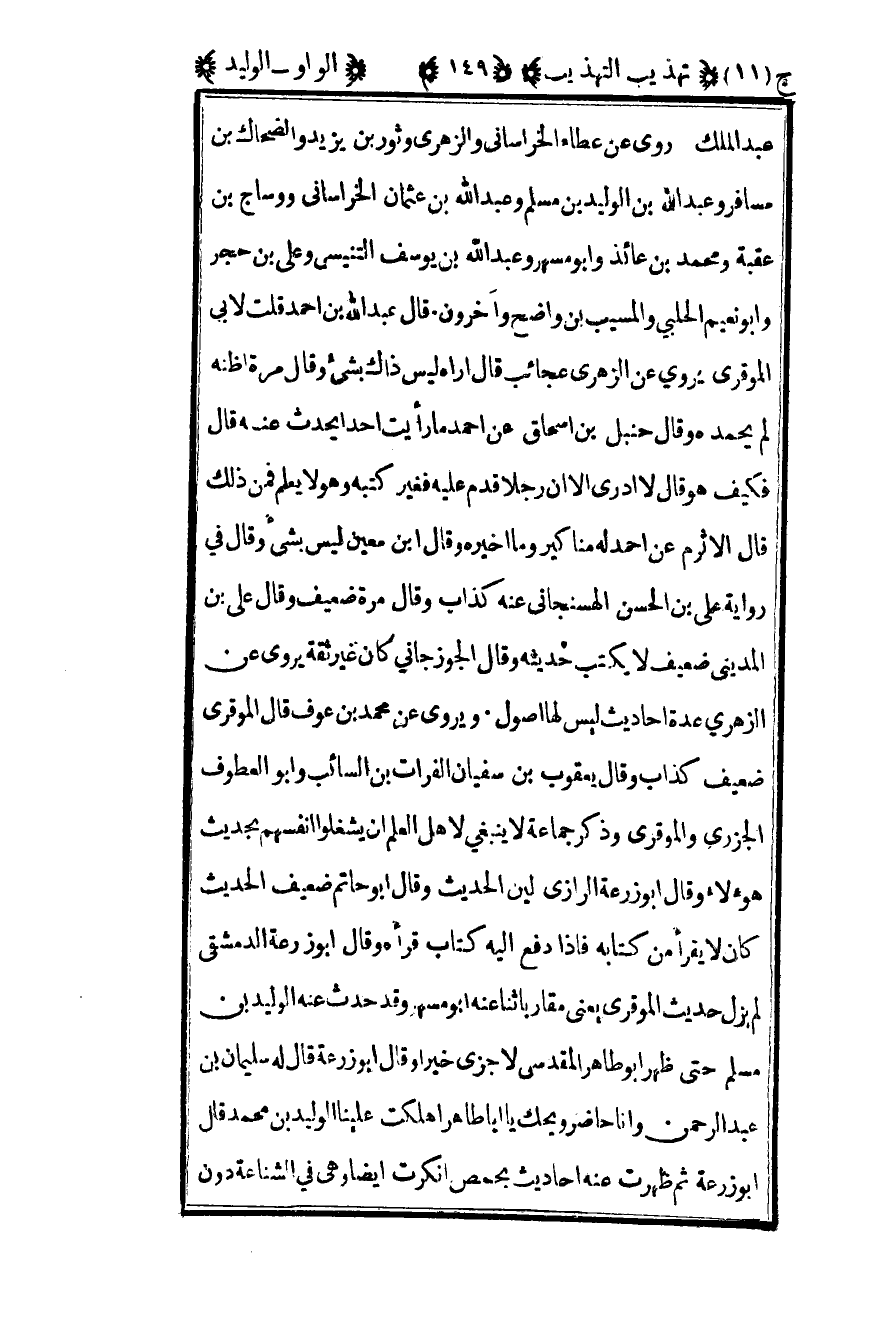 ج (١١) تهذيب التهذيب ١٤٩ الواو ـ الوليد
عبدالملك روى عن عطاء الخراسانى والزهرى وثور بن يزيد والضحاك بن
مسافر وعبدالله بن الوليد بن مسلم وعبدالله بن عثمان الخراسانى ووساج بن
عقبة ومحمد بن عائذ وابومسهر وعبدالله بن يوسف التنيسى وعلى بن حجر
وابونعيم الحلبي والمسيب بن واضح وآخرون. قال عبدالله بن احمد قلت لابى
الموقرى يروي عن الزهرى عجائب قال اراه ليس ذاك بشئ وقال مرة اظنه
لم يحمده وقال حنبل بن اسحاق عن احمد ما رأيت احدا يحدث عنه قال
فكيف هو قال لا ادرى الا ان رجلا قدم عليه فغير كتبه وهو لا يعلم فمن ذلك
قال الاثرم عن احمد له مناكير وما اخبره وقال ابن معين ليس بشئ وقال في
رواية على بن الحسن الهسنجانى عنه كذاب وقال مرة ضعيف وقال على بن
المدينى ضعيف لا يكتب حديثه وقال الجوزجاني كان غير ثقة يروى عن
الزهري عدة احاديث ليس لها اصول. ويروى عن محمد بن عوف قال الموقرى
ضعيف كذاب وقال يعقوب بن سفيان الفرات بن السائب وابو العطوف
الجزري والموقرى وذكر جماعة لا ينبغي لاهل العلم ان يشغلوا انفسهم بحديث
هوءلاء وقال ابوزرعة الرازى لين الحديث وقال ابوحاتم ضعيف الحديث
كان لا يقرأ من كتابه فاذا دفع اليه كتاب قرأه وقال ابوزرعة الدمشقى
لم يزل حديث الموقرى يعنى مقاربا ثنا عنه ابومسهر وقد حدث عنه الوليد بن
مسلم حتى ظهر ابوطاهر المقدسى لا جزى خيرا وقال ابوزرعة قال له سليمان بن
عبدالرحمن وانا حاضر ويحك يا اباطاهر اهلكت علينا الوليد بن محمد قال
ابوزرعة ثم ظهرت عنه احاديث بحمص انكرت ايضا وهى في الشناعة دون